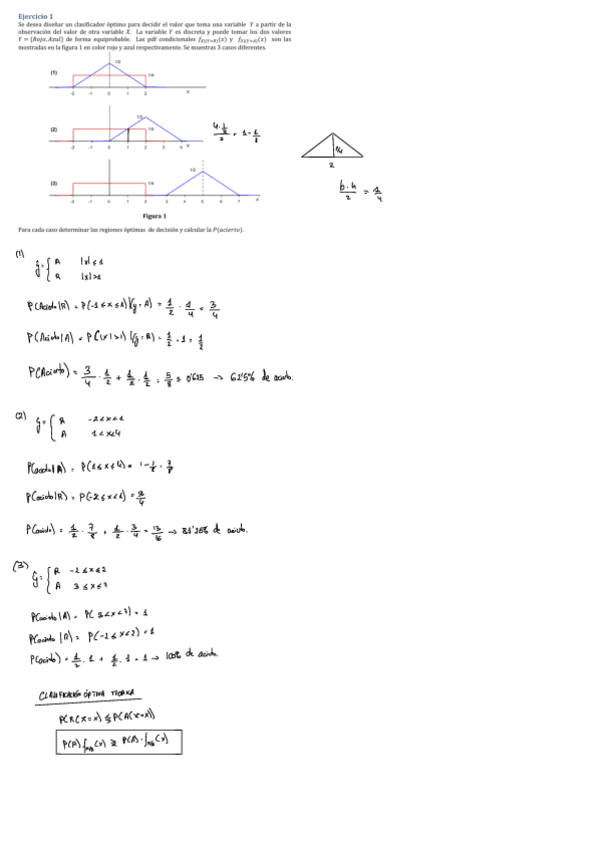 Ejercicio 1
Se desea diseñar un clasificador óptimo para decidir el valor que toma una variable Y a partir de la
observación del valor de otra variable X. La variable Y es discreta y puede tomar los dos valores
Y = {Rojo, Azul} de forma equiprobable. Las pdf condicionales f_{X|Y=R}(x) y f_{X|Y=A}(x) son las
mostradas en la figura 1 en color rojo y azul respectivamente. Se muestras 3 casos diferentes.
(1) 1/2 1/4
-2 -1 0 1 2 x
(2) 1/2 1/4
-2 -1 0 1 2 3 4 x
(3) 1/2 1/4
-2 -1 0 1 2 3 4 5 6 7 x
Figura 1
1/4
2
b·h/2 = 1/4
Para cada caso determinar las regiones óptimas de decisión y calcular la P(acierto).
(1)
ŷ = { A |x| ≤ 1
R |x|>1
P(Acierto|A) = P(|x|>1) (y=R) = 1/2 · 1 = 1/2
P(Acierto) = 3/4 · 1/2 + 1/2 · 1/2 = 5/8 = 0'625 → 62'5% de acierto.
(2)
ŷ = { R -2<x<1
A 1<x<4
P(acierto|A) = P(1≤x≤4) = 1-1/8 = 7/8
P(acierto|R) = P(-2≤x<1) = 3/4
P(acierto) = 1/2 · 7/8 + 1/2 · 3/4 = 13/16 → 81'25% de acierto.
(3)
ŷ = { R -2≤x≤2
A 3≤x≤7
P(acierto|A) = P(3<x<7) = 1
P(acierto|R) = P(-2≤x<2) = 1
P(acierto) = 1/2 · 1 + 1/2 · 1 = 1 → 100% de acierto.
CLASIFICACIÓN ÓPTIMA TEORÍA